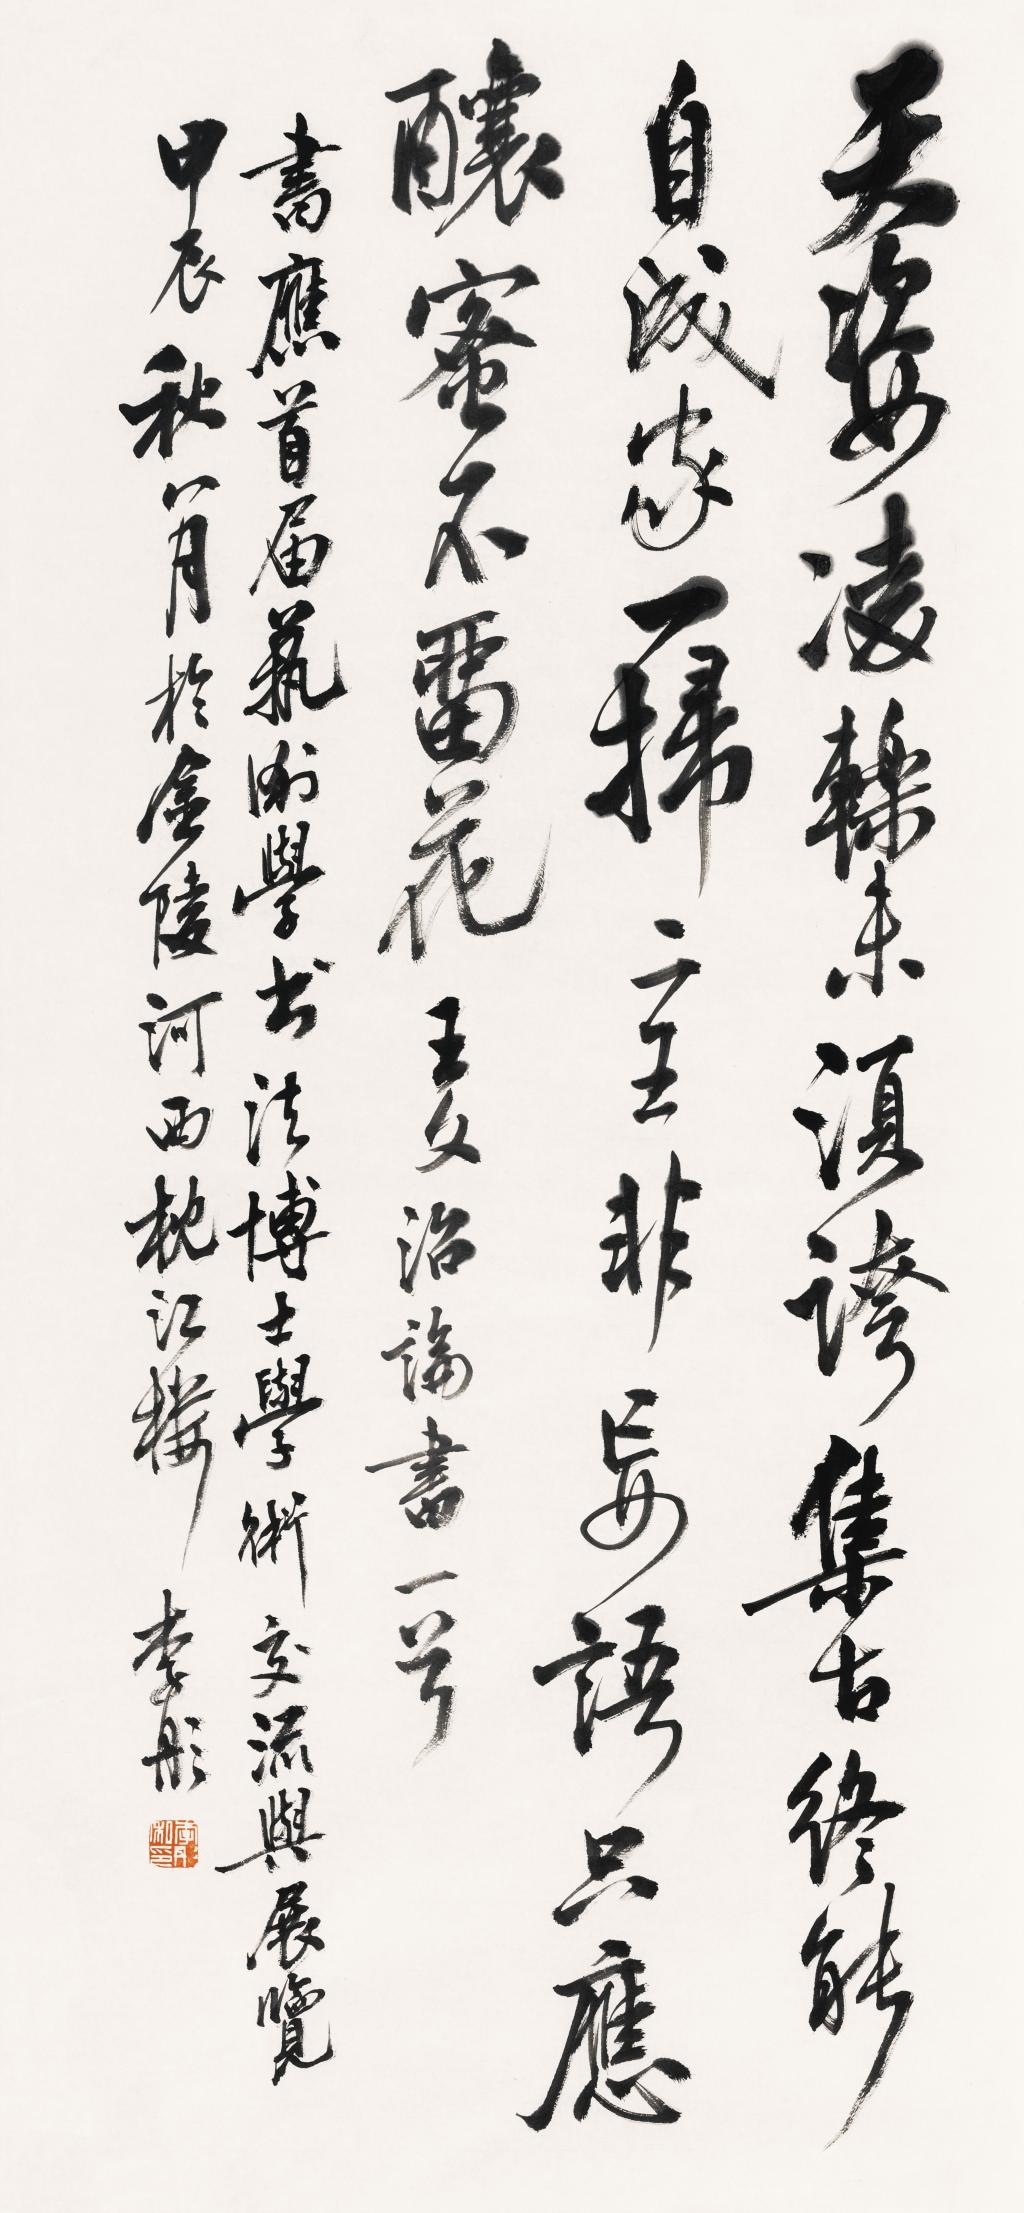 天姿凌轢未須誇集古終能
自成家一掃二王非妄語只應
釀蜜不畱花 王文治論書一首
書應首届藝術學书法博士學術交流與展覽
甲辰秋八月於金陵河西枕江樓 李彤